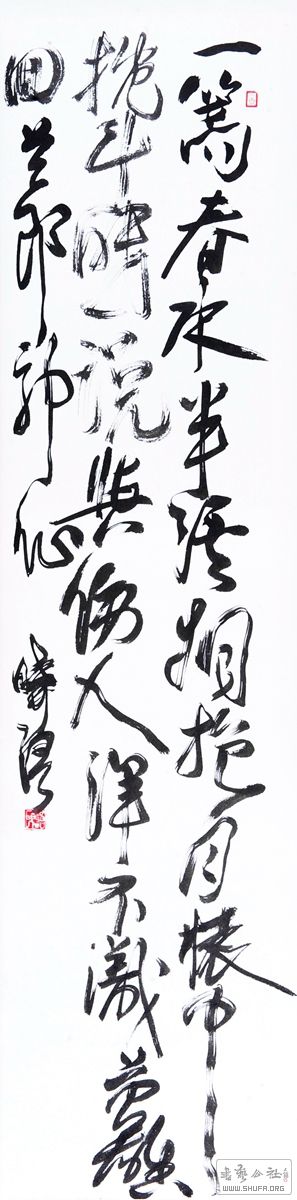 一篙春水半溪烟抱月懷中
枕斗眠說與傍人渾不識英雄
回首即神仙
书艺公社
WWW.SHUFA.ORG